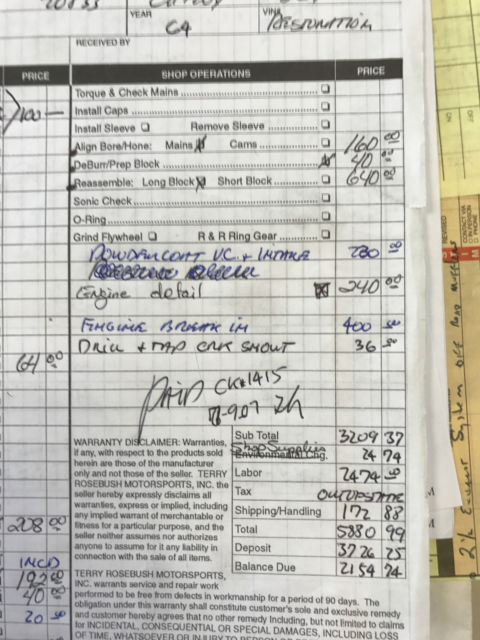 YEAR
64
VIN#
RESTORATION
RECEIVED BY
PRICE SHOP OPERATIONS PRICE
Torque & Check Mains
100 — Install Caps
Install Sleeve Remove Sleeve
Align Bore/Hone: Mains Cams 160 00
DeBurr/Prep Block 40 00
Reassemble: Long Block Short Block 640 00
Sonic Check
O-Ring
Grind Flywheel R & R Ring Gear
POWDERCOAT VC + INTAKE 00
Engine detail 240 00
ENGINE BREAK IN 400 00
DRILL & TAP SNOUT 36 00
64 00
PAID CK#1415
WARRANTY DISCLAIMER: Warranties,
if any, with respect to the products sold
herein are those of the manufacturer
only and not those of the seller. TERRY
ROSEBUSH MOTORSPORTS, INC. the
seller hereby expressly disclaims all
warranties, express or implied, including
any implied warrant of merchantable or
fitness for a particular purpose, and the
seller neither assumes nor authorizes
anyone to assume for it any liability in
connection with the sale of all items.
Sub Total 3209 37
Shop Supplies
Environmental Chg. 24 74
Labor 2474 00
Tax OUTOFSTATE
Shipping/Handling 172 88
Total 5880 99
Deposit 3726 25
Balance Due 2154 74
208 00
INCD
192 00
40 00
20 00
TERRY ROSEBUSH MOTORSPORTS,
INC. warrants service and repair work
performed to be free from defects in workmanship for a period of 90 days. The
obligation under this warranty shall constitute customer's sole and exclusive remedy
and customer hereby agrees that no other remedy Including, but not limited to claims
for INCIDENTAL, CONSEQUENTIAL OR SPECIAL DAMAGES, INCLUDING LOSS
OF TIME,
ON
OFF
REVISED
CONTACT VIA:
IN PERSON
PHONE